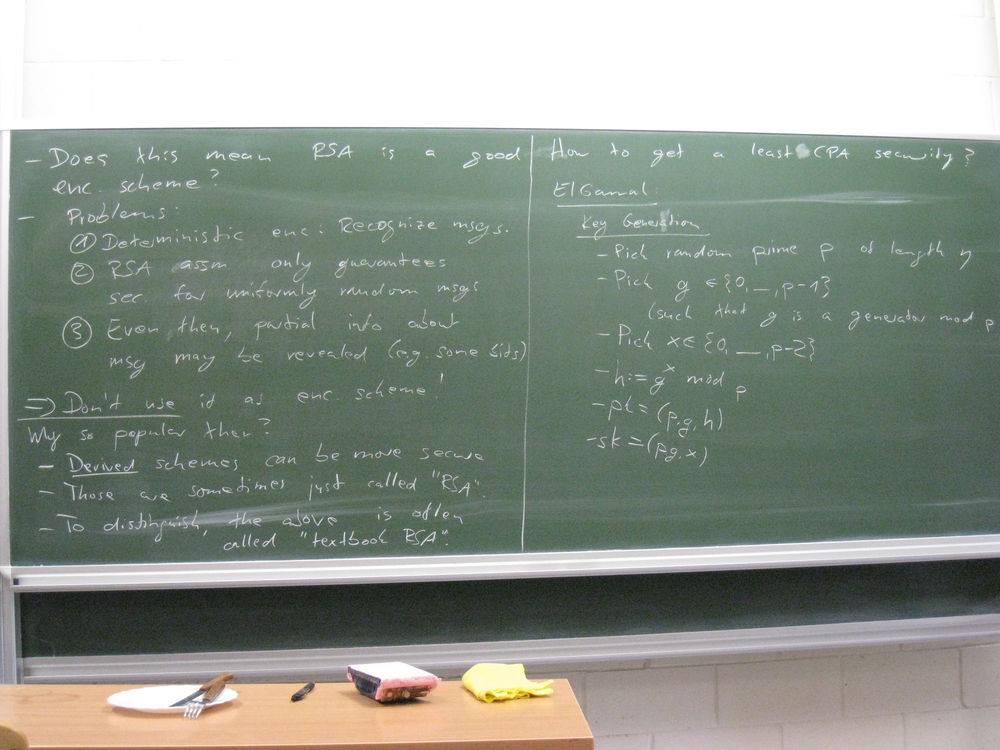 - Does this mean RSA is a good
enc. scheme?
- Problems:
① Deterministic enc: Recognize msgs.
② RSA assm only guarantees
sec. for uniformly random msgs
③ Even then, partial info about
msg may be revealed (e.g. some bits)
=> Don't use it as enc. scheme!
Why so popular then?
- Derived schemes can be more secure
- Those are sometimes just called "RSA".
- To distinguish, the above is often
called "textbook RSA".
How to get a least CPA security?
ElGamal:
Key Generation
- Pick random prime p of length η
- Pick g ∈ {0, …, p-1}
(such that g is a generator mod p
- Pick x ∈ {0, …, p-2}
- h := g^x mod p
- pk = (p, g, h)
- sk = (p, g, x)